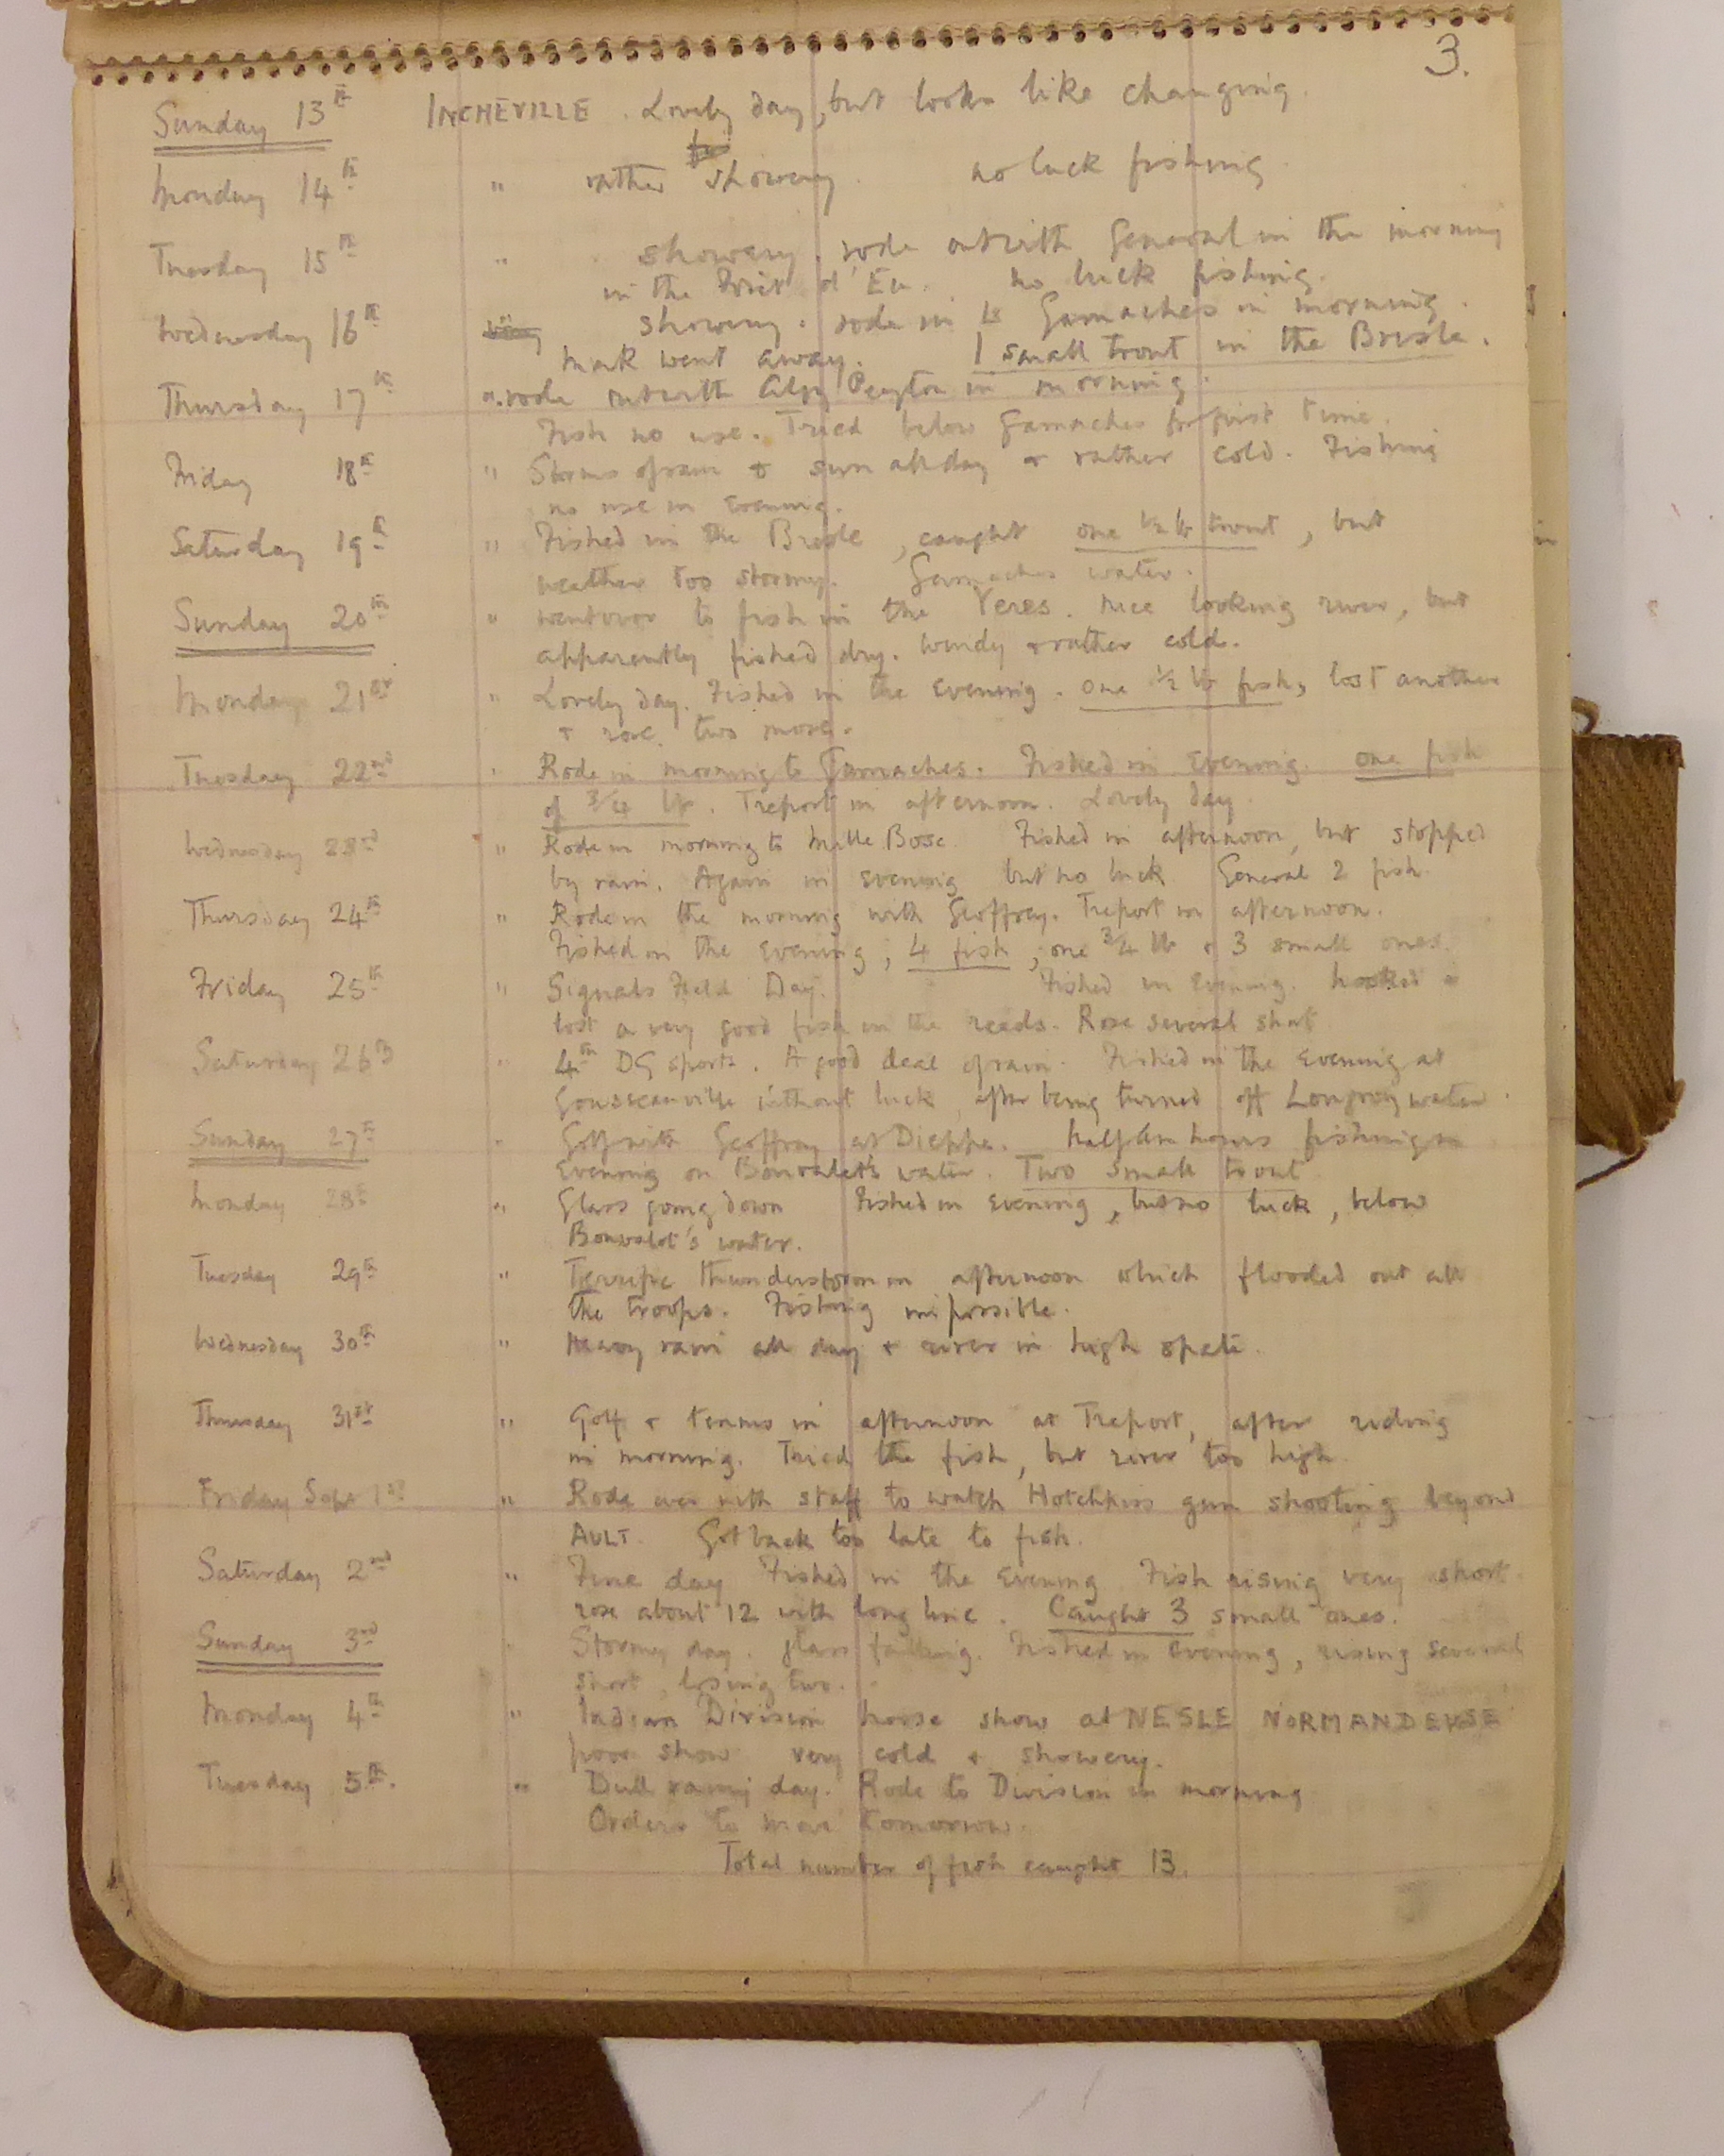 3.
Sunday 13th INCHEVILLE. Lovely day, but looks like changing.
Monday 14th " rather showery. no luck fishing.
Tuesday 15th " showery. rode out with General in the morning
in the Foret d'Eu. no luck fishing.
Wednesday 16th showery. rode in to Gamaches in morning.
Mark went away. 1 small trout in the Bresle.
Thursday 17th ". rode out with Algy Peyton in morning.
Fish no use. Tried below Gamaches for first time.
Friday 18th " Storms of rain & sun all day & rather cold. Fishing
no use in Evening.
Saturday 19th " Fished in the Bresle, caught one ½ lb trout, but
weather too stormy. Gamaches water.
Sunday 20th " went over to fish in the Yeres. Nice looking river, but
apparently fished dry. Windy & rather cold.
Monday 21st " Lovely day. Fished in the Evening. one ½ lb fish, lost another
& rose two more.
Tuesday 22nd " Rode in morning to Gamaches. Fished in Evening. one fish
of ¾ lb. Treport in afternoon. Lovely day.
Wednesday 23rd " Rode in morning to Mille Bosc. Fished in afternoon, but stopped
by rain. Again in evening but no luck. General 2 fish.
Thursday 24th " Rode in the morning with Geoffrey. Treport in afternoon.
Fished in the Evening; 4 fish, one ¾ lb & 3 small ones.
Friday 25th " Signals Field Day. Fished in Evening. hooked &
lost a very good fish in the reeds. Rose several short
Saturday 26th " 4th DG sports. A good deal of rain. Fished in the Evening at
Gousseauville without luck, after being turned off Longroy water.
Sunday 27th " Golf with Geoffrey at Dieppe. half an hours fishing in
Evening on Bonvalet's water. Two small trout
Monday 28th " Glass going down Fished in Evening, but no luck, below
Bonvalet's water.
Tuesday 29th " Terrific thunderstorm in afternoon which flooded out all
the troops. Fishing impossible.
Wednesday 30th " Heavy rain all day & river in high spate.
Thursday 31st " Golf & tennis in afternoon at Treport, after riding
in morning. Tried the fish, but river too high.
Friday Sept 1st " Rode over with staff to watch Hotchkiss gun shooting beyond
AULT. Got back too late to fish.
Saturday 2nd " Fine day Fished in the Evening Fish rising very short.
rose about 12 with long line. Caught 3 small ones.
Sunday 3rd " Stormy day. glass falling. Fished in Evening, rising several
short, losing two.
Monday 4th " Indian Division horse show at NESLE NORMANDEUSE
poor show very cold & showery.
Tuesday 5th. " Dull rainy day. Rode to Division in morning
Orders to move tomorrow.
Total number of fish caught 13.